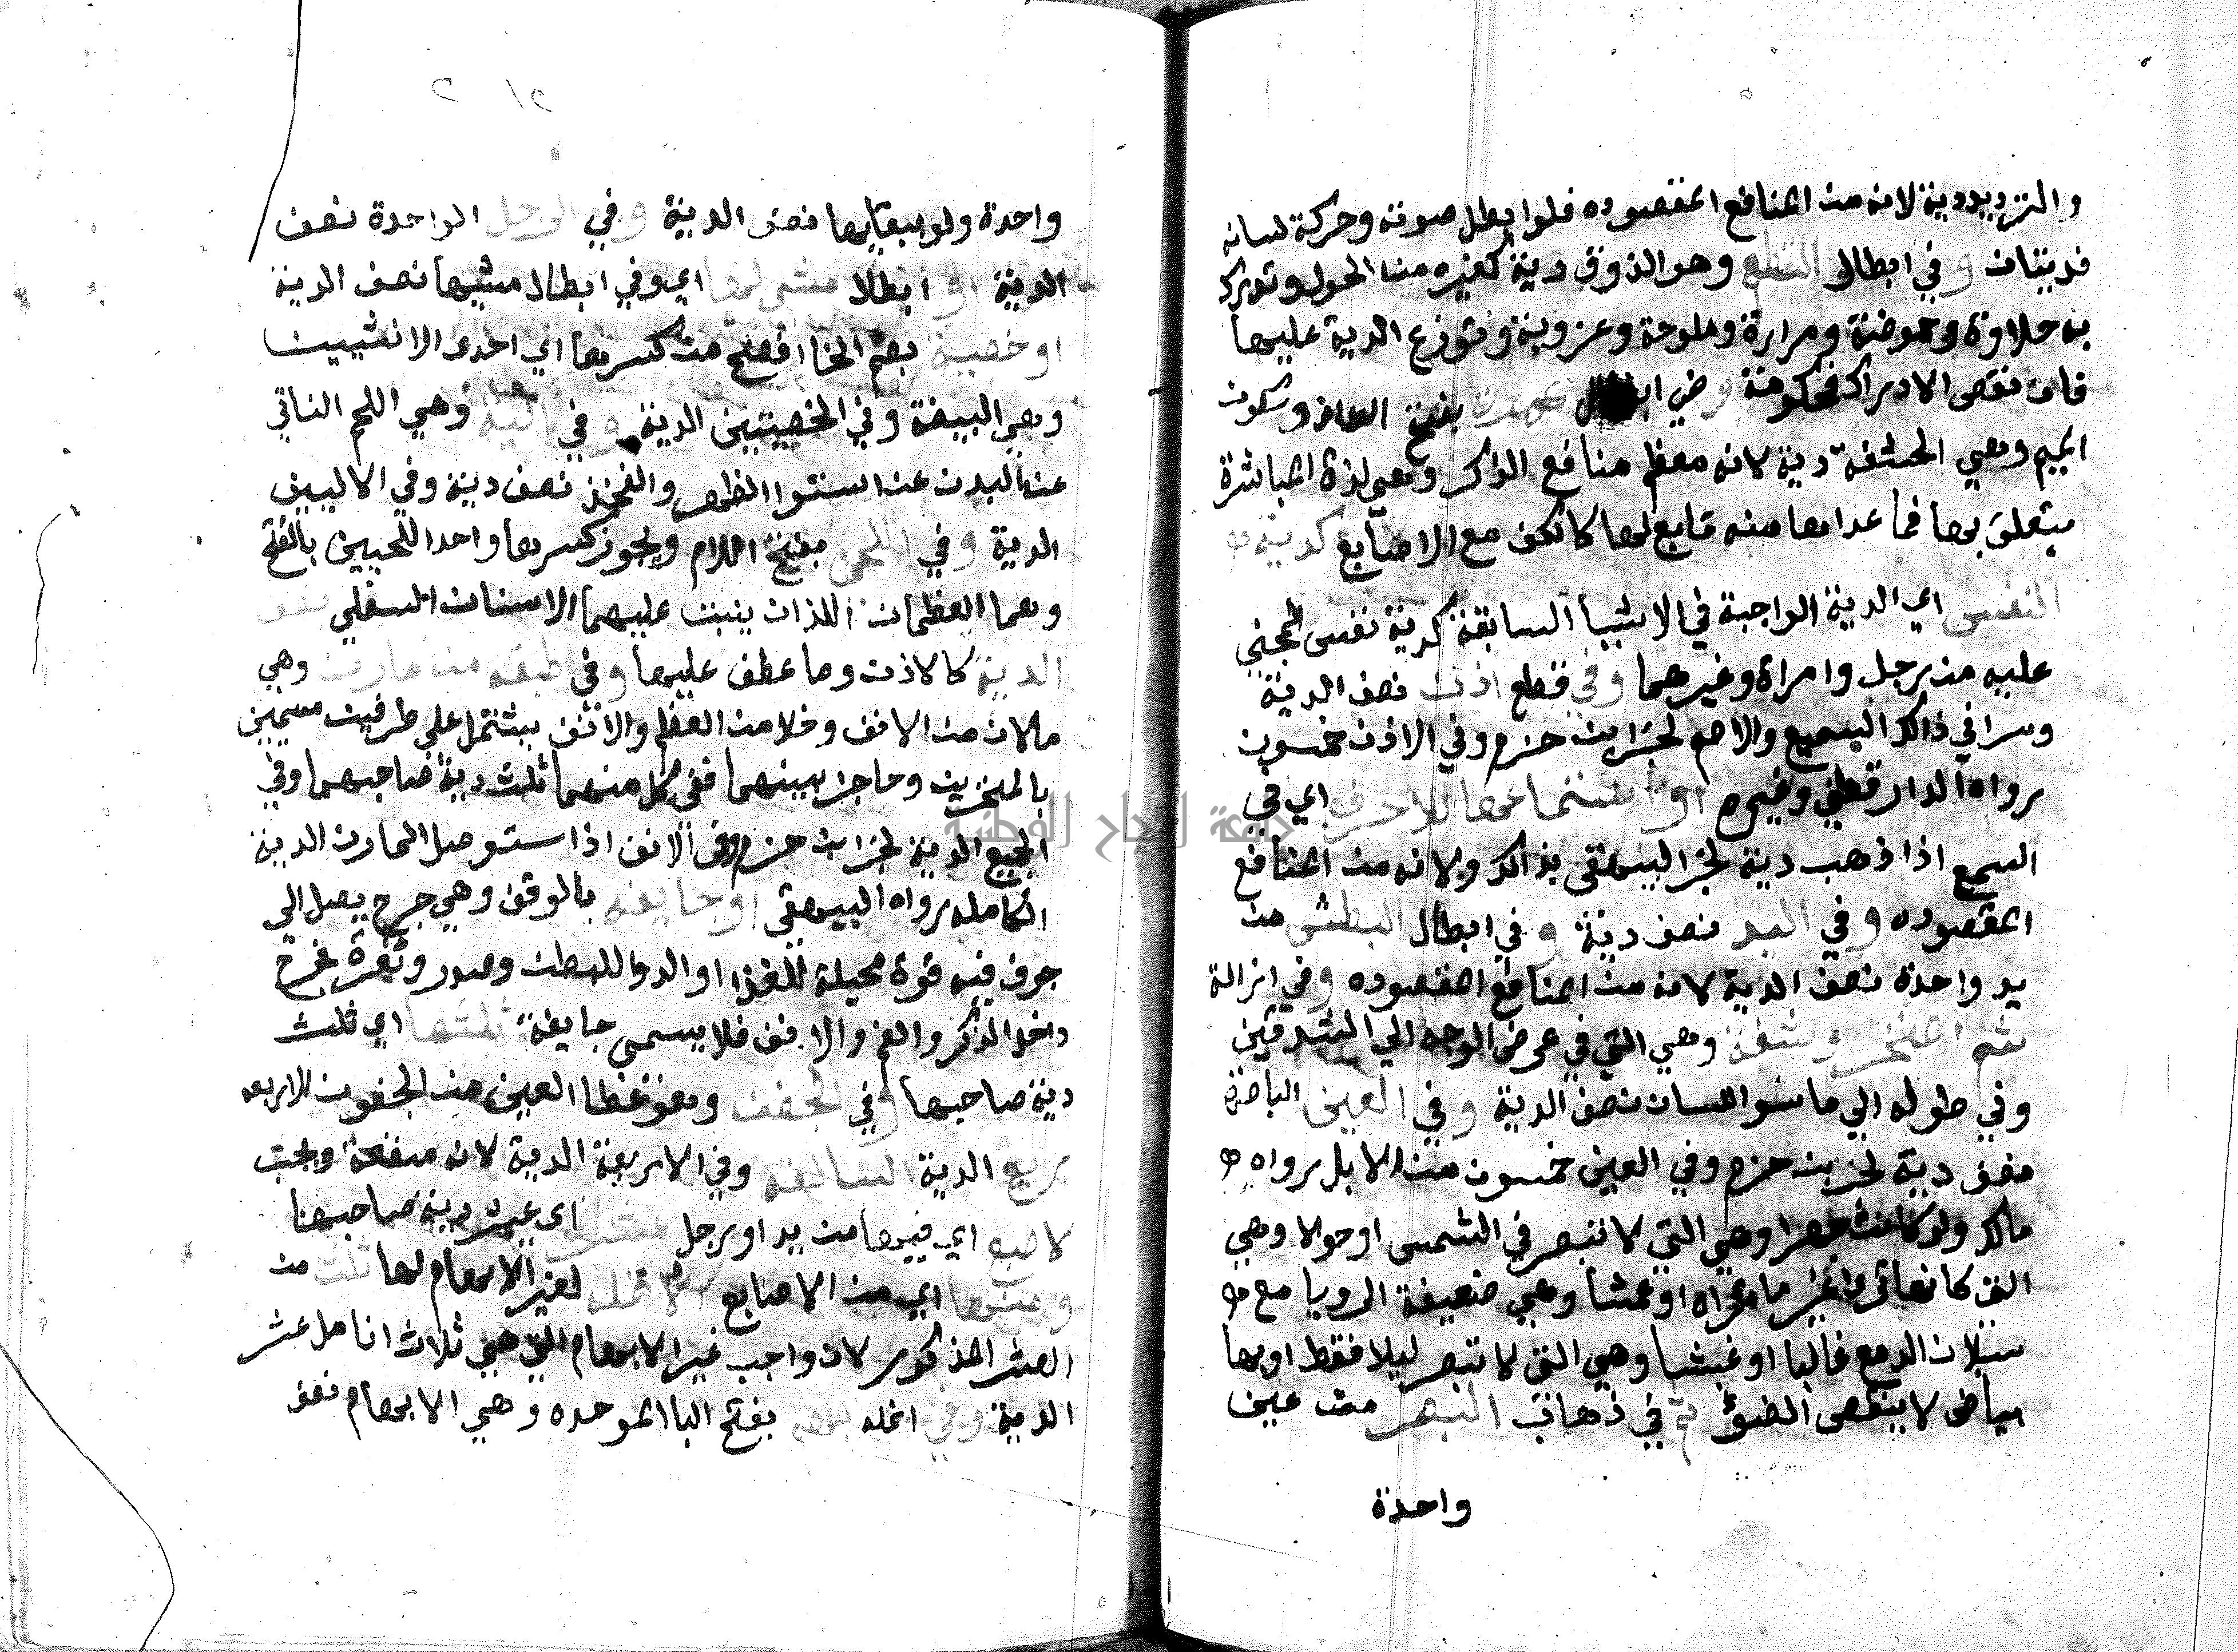 والترديد دية لانه من المنافع المقصوده فلو ابطل صوته وحركة لسانه
فديتان وفي ابطال الطعم وهو الذوق دية كغيره من الحواس وتدرك
به حلاوة وحموضة ومرارة وملوحة وعزوبة وتوزع الدية عليها
فان نقص الادراك فحكومة وفي ابطال بفتح الحاء وسكون
الميم وهي الحشفة دية لانه معظم منافع الذكر وهي لذة المباشرة
يتعلق بها فما عداها منه تابع لها كالكف مع الاصابع كدية
النفس اي الدية الواجبة في الاشيا السابقة كدية نفس المجني
عليه من رجل وامراة وغيرهما وفي قطع اذن نصف الدية
وسوا في ذالك السميع والاصم لخبر ابن حزم وفي الاذن خمسون
رواه الدارقطني وغيره او استماعها للاحرف اي في
السمع اذا ذهب دية لخبر البيهقي بذالك ولانه من المنافع
المقصوده وفي اليد نصف دية وفي ابطال البطش من
يد واحدة نصف الدية لانه من المنافع المقصوده وفي ازالة
شم المنخر وشفة وهي التي في عرض الوجه الي الشدقين
وفي طوله الي ما ستر اللسان نصف الدية وفي العين الباصرة
نصف دية لخبر بن حزم وفي العين خمسون من الابل رواه
مالك ولو كانت وهي التي لا تبصر في الشمس او حولا وهي
التي كانها تري غير ما تراه او عمشا وهي ضعيفة الرويا مع
سيلان الدمع غالبا او غبشا وهي التي لا تبصر ليلا فقط او بها
بياض لا ينقص الضوئ ثم في ذهاب البصر من عين
واحدة
واحدة ولو ببقايها نصف الدية وفي الرجل الواحدة نصف
الدية او ابطال مشي لها اي وفي ابطال مشيها نصف الدية
او خصية بضم الخا افصح من كسرها اي احدى الانثيين
وهي البيضة وفي الخصيتين الدية وفي الية وهي اللحم الناتي
عن البدن عند استوا الظهر والفخذ نصف دية وفي الاليين
الدية وفي اللحي بفتح اللام ويجوز كسرها واحد اللحيين بالفتح
وهما العظمان اللذان ينبت عليهما الاسنان السفلي نصف
الدية كالاذن وما عطف عليها وفي طبقه من مارن وهي
مالان من الانف وخلا من العظم والانف يشتمل علي طرفين مسميين
بالمنخرين وحاجز بينهما ففي كل منهما ثلث دية صاحبهما وفي
الجميع الدية لخبر ابن حزم وفي الانف اذا استوصل المارن الدية
الكامله رواه البيهقي او جايفه بالوقف وهي جرح يصل الي
جوف فيه قوة محيلة للغذا او الدوا للبطن وصدر وثغرة
داخل الذكر والفم والانف فلا يسمى جايفة ثلثها اي ثلث
دية صاحبها وفي الجفن وهو غطا العين من الجفون الاربعه
ربع الدية السالفه وفي الاربعة الدية لانه منفعة ويجب
لاصبع اي فيها من يد او رجل عشر اي عشر دية صاحبها
ومنها اي من الاصابع لانمله لغير الابهام لها ثلث من
العشر المذكور لان واجب غير الابهام التي هي ثلاث انامل عشر
الدية وفي انمله بفتح البا الموحده وهي الابهام نصف
جامعة النجاح الوطنية